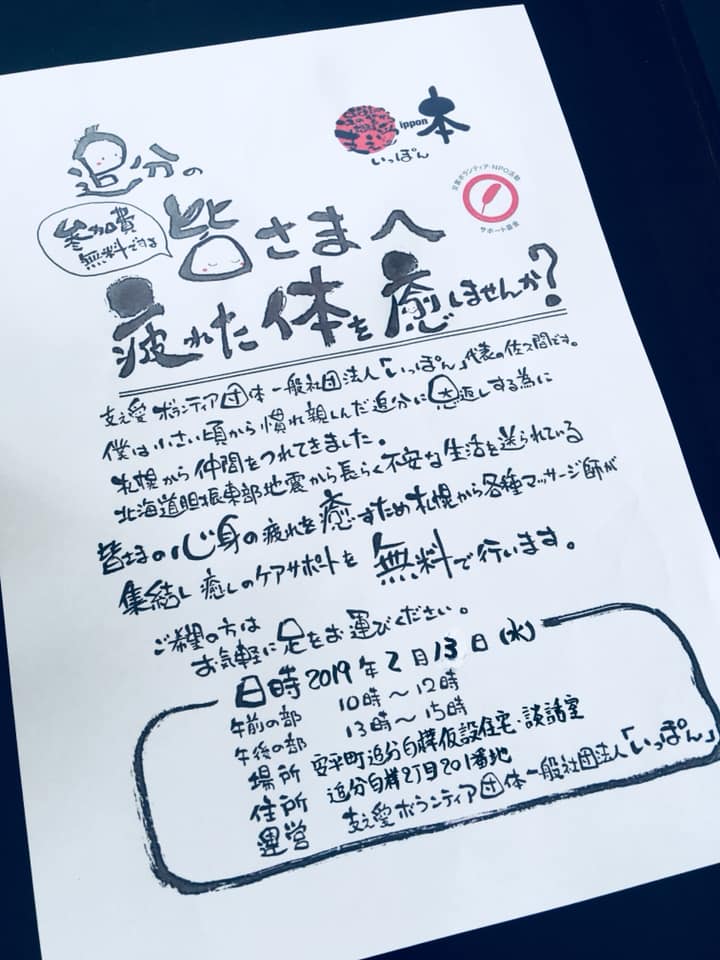 ippon
本
いっぽん
追分の
災害ボランティア・NPO活動
サポート募金
参加費
無料です
皆さまへ
疲れた体を癒しませんか?
支え愛ボランティア団体 一般社団法人「いっぽん」代表の佐久間です。
僕は小さい頃から慣れ親しんだ追分に恩返しする為に
札幌から仲間をつれてきました。
北海道胆振東部地震から長らく不安な生活を送られている
皆さまの心身の疲れを癒すため札幌から各種マッサージ師が
集結し癒しのケアサポートを 無料で行います。
ご希望の方は
お気軽に足をお運びください。
日時 2019年2月13日(水)
午前の部 10時〜12時
午後の部 13時〜15時
場所 安平町追分白樺仮設住宅・談話室
住所 追分白樺2丁目201番地
運営 支え愛ボランティア団体一般社団法人「いっぽん」